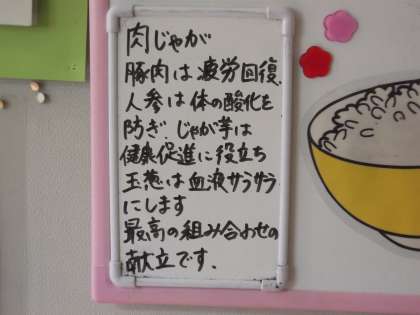 肉じゃが
豚肉は疲労回復、
人参は体の酸化を
防ぎ、じゃが芋は
健康促進に役立ち
玉葱は血液サラサラ
にします
最高の組み合わせの
献立です。